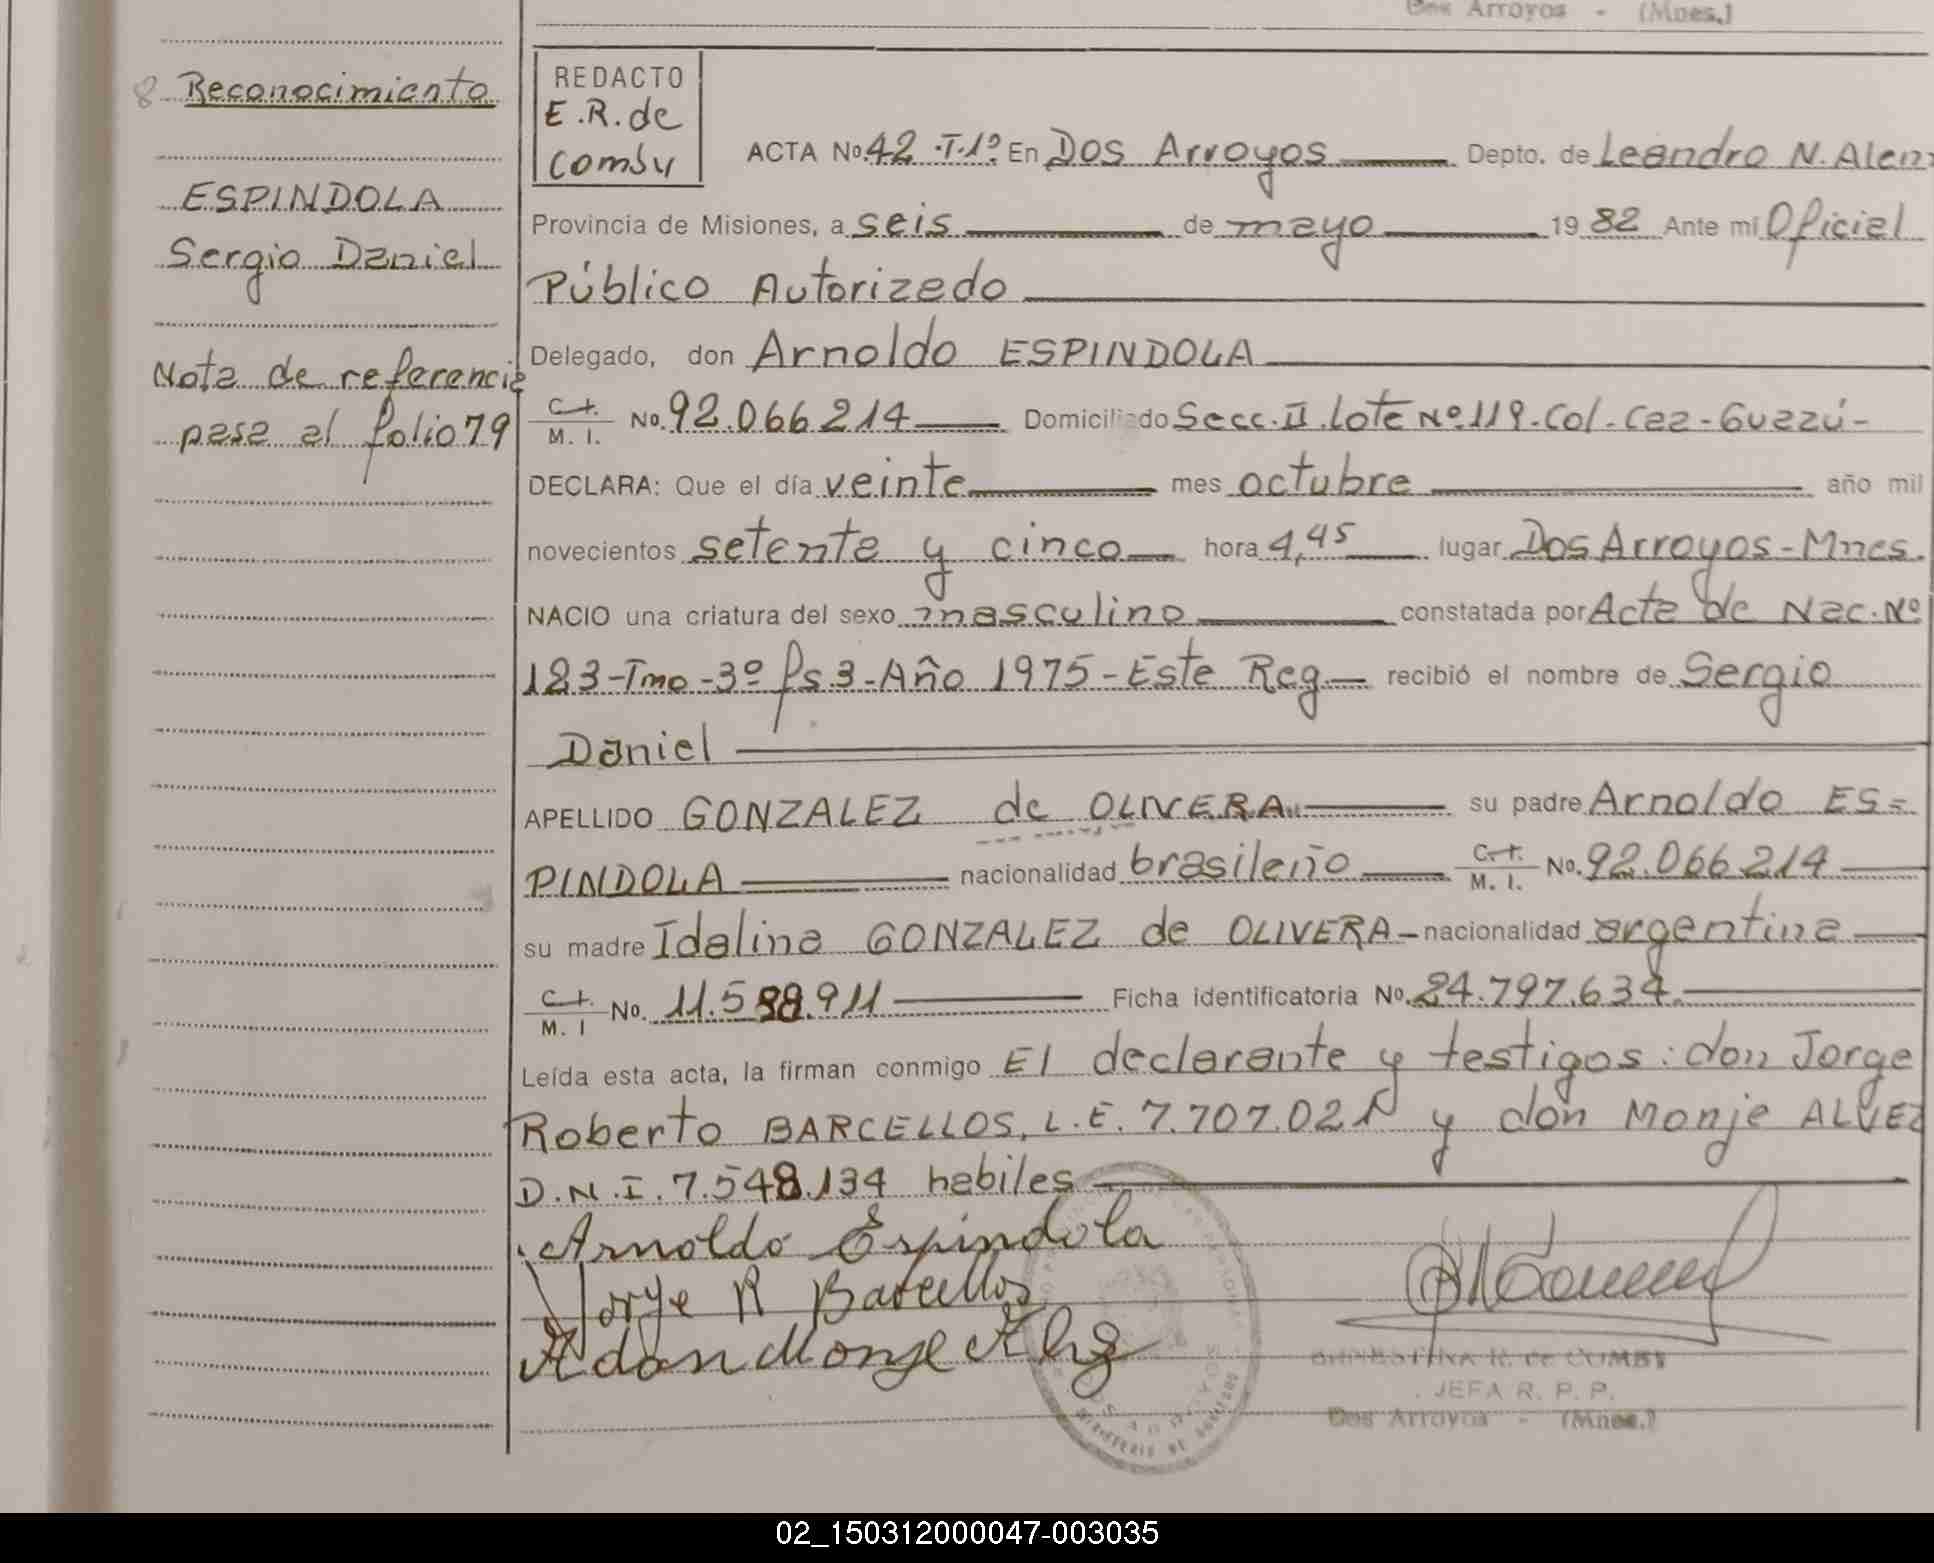 Dos Arroyos - (Mnes.)
8 Reconocimiento
ESPINDOLA
Sergio Daniel
Nota de referencia
pasa al folio 79
REDACTO
E.R. de
Comby
ACTA No. 42 -T.1º En Dos Arroyos Depto. de Leandro N. Alem
Provincia de Misiones, a seis de mayo 1982 Ante mí Oficial
Público Autorizado
Delegado, don Arnoldo ESPINDOLA
C.I. M. I. No. 92.066.214 Domiciliado Secc. II. Lote Nº 119. Col. Caa-Guazú-
DECLARA: Que el día veinte mes octubre año mil
novecientos setenta y cinco hora 4,45 lugar Dos Arroyos - Mnes.
NACIO una criatura del sexo masculino constatada por Acta de Nac. Nº
183-Tmo-3º fs 3-Año 1975-Este Reg. recibió el nombre de Sergio
Daniel
APELLIDO GONZALEZ de OLIVERA su padre Arnoldo ES=
PINDOLA nacionalidad brasileño C.I. M. I. No. 92.066.214
su madre Idalina GONZALEZ de OLIVERA - nacionalidad argentina
C.I. M. I No. 11.588.911 Ficha identificatoria No. 24.797.634.
Leída esta acta, la firman conmigo El declarante y testigos: don Jorge
Roberto BARCELLOS, L.E. 7.707.021 y don Monje ALVEZ
D.N.I. 7.548.134 habiles
Arnoldo Espindola
Jorge R Barcellos
Adan Monje
JEFA R. P. P.
Dos Arroyos - (Mnes.)
02_150312000047-003035